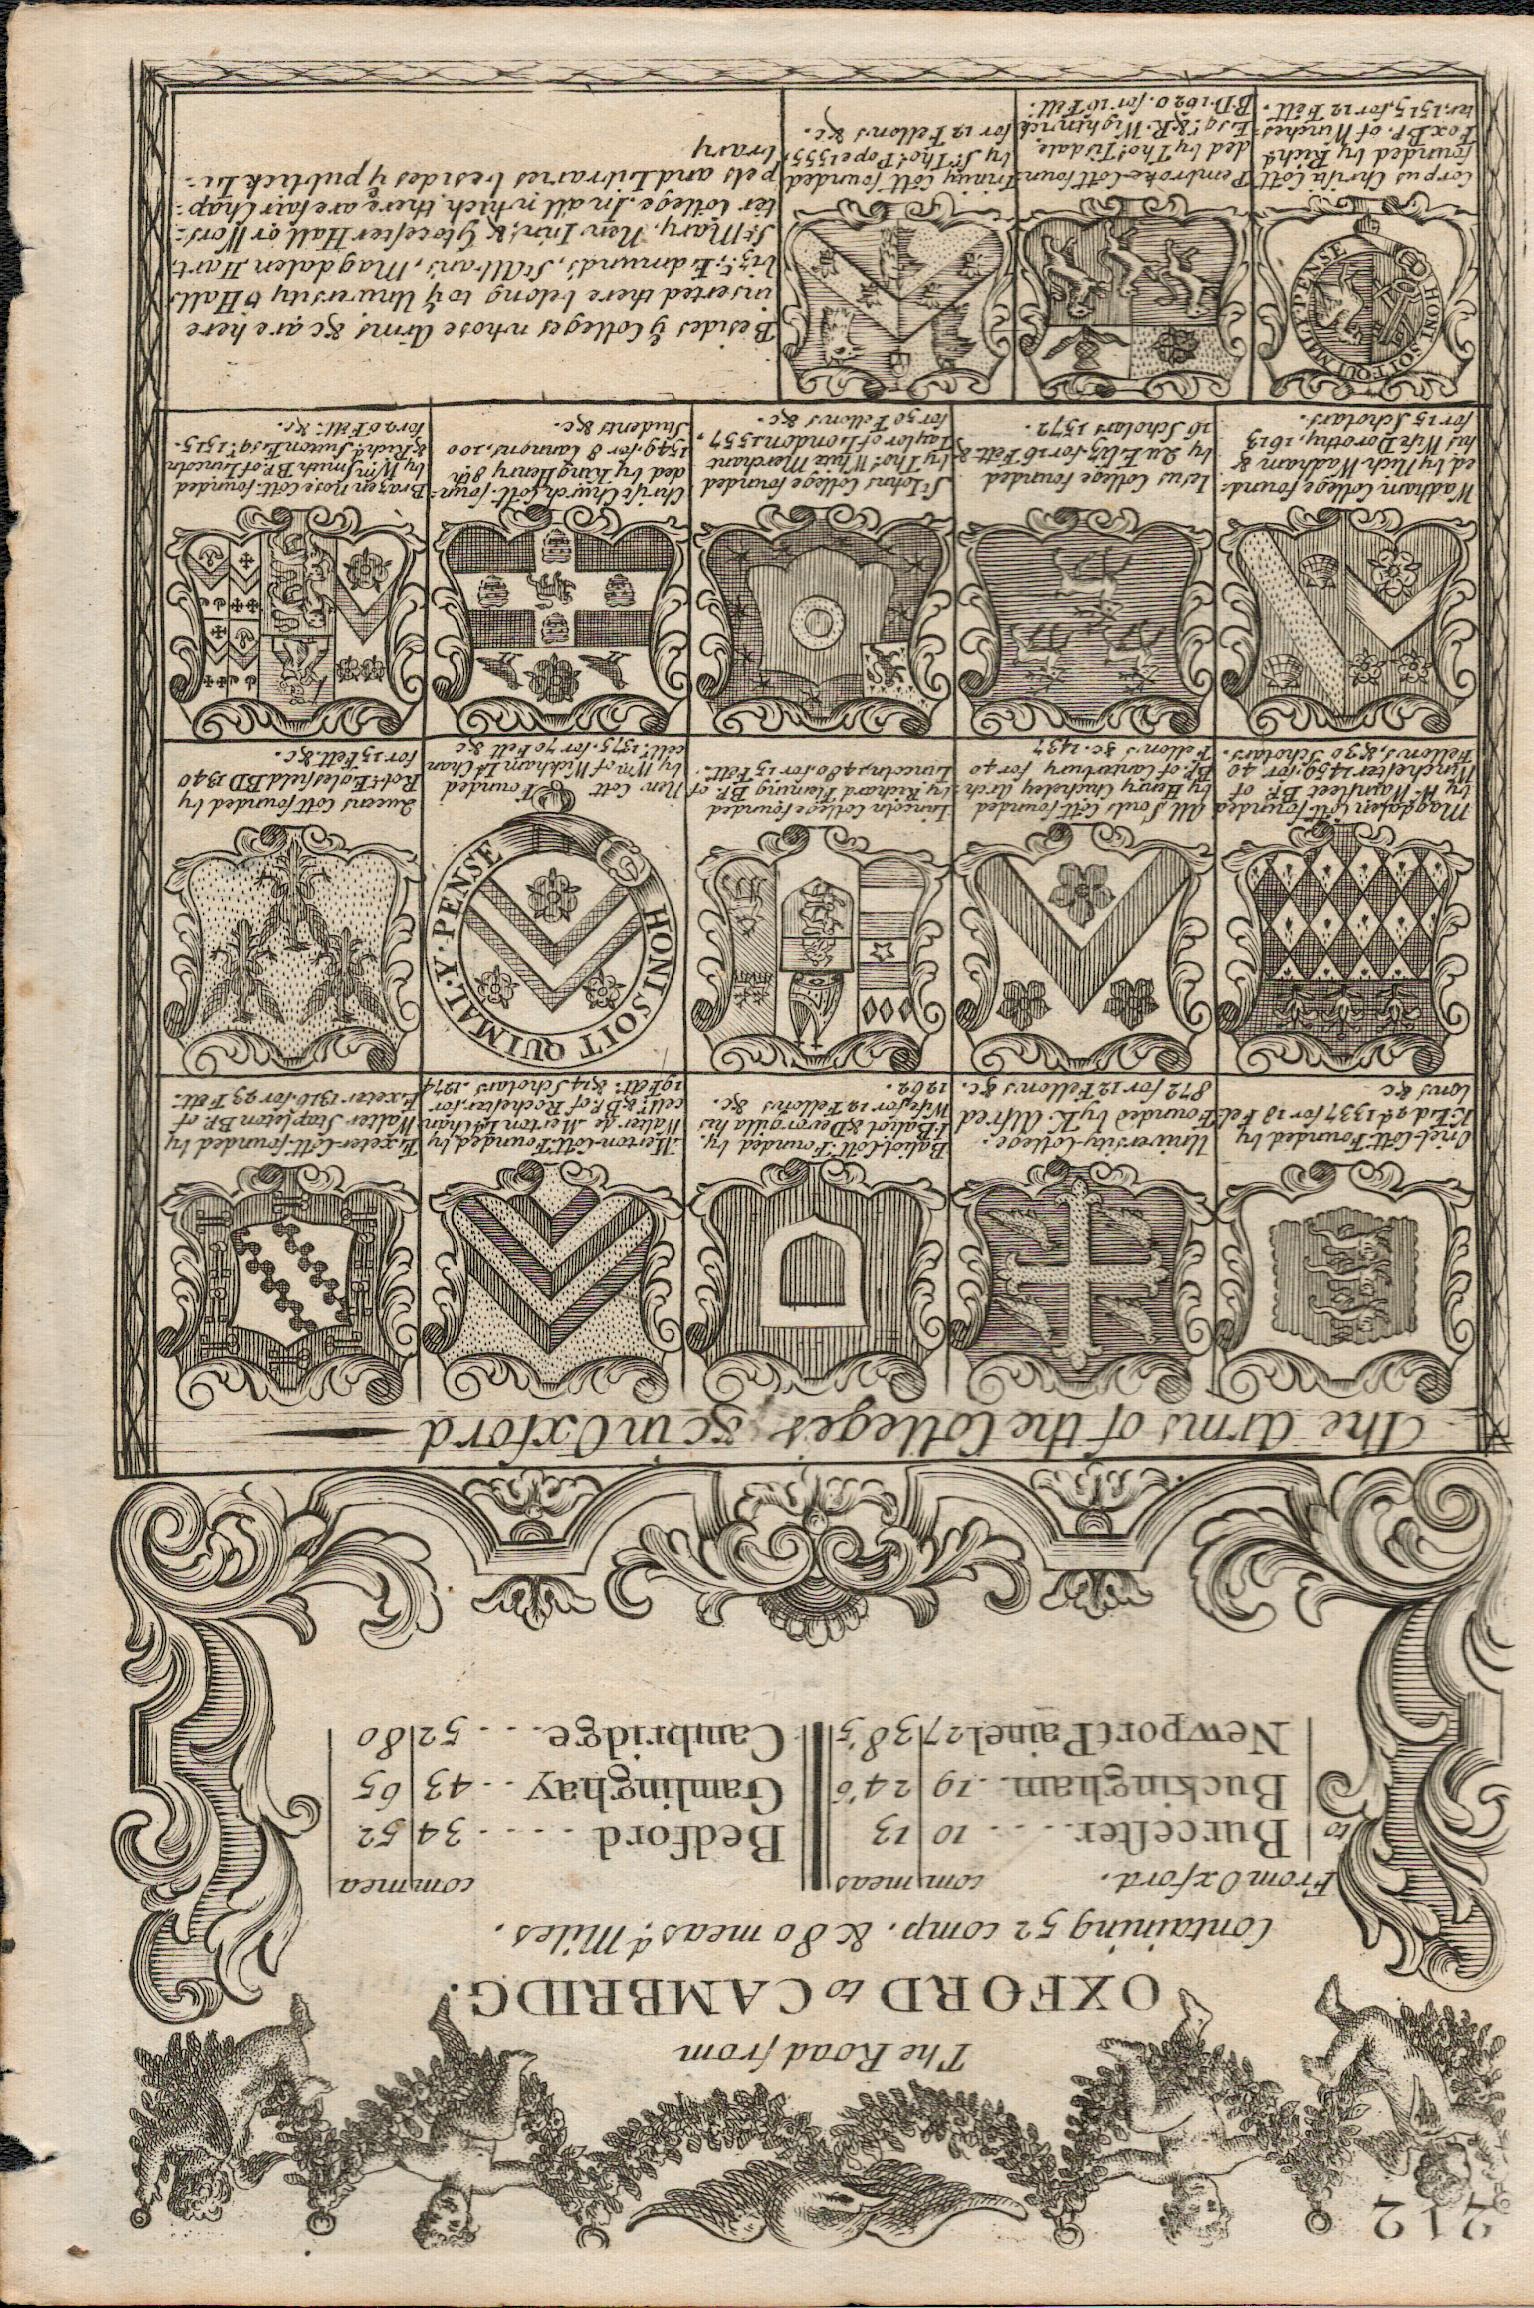 212
The Road from
OXFORD to CAMBRIDG.
Containing 52 comp. & 80 measd. Miles.
From Oxford. com meas
to Burcester.... 10 13
Buckingham.. 19 24'6
Newport Painel 27 38'5
com mea
Bedford .... 34 52
Gamlinghay .. 43 65
Cambridge... 52 80
The Arms of the Colleges &c in Oxford
Oriel-Coll. Founded by
K. Ed 2d 1337 for 18 Fel-
lows &c
University-College.
Founded by K. Alfred
872 for 12 Fellows &c.
Baliol-Coll. Founded by
I. Baliol & Devorgilla his
Wife, for 12 Fellows &c.
1262.
Merton-Coll. Founded by
Walter de Merton Ld Chan
cellr. & Bp. of Rochester, for
19 Fell: & 14 Scholars .1274
Exeter-Coll. founded by
Walter Stapleton Bp. of
Exeter 1316. for 23 Fell:
Magdalen Coll. founded
by W. Wainfleet Bp. of
Winchester 1459. for 40
Fellows, & 30 Scholars.
All Souls Coll. founded
by Henry Chicheley Arch-
Bp. of Canterbury for 40
Fellows &c. 1437
Lincoln College founded
by Richard Fleming Bp. of
Lincoln, 1480. for 15 Fell:
HONI. SOIT QUI MAL.Y.PENSE
New Coll Founded
by Wm of Wickham Ld Chan
cellr. 1375. for 70 Fell &c
Queens Coll founded by
Robt Eglesfield BD 1340
for 15 Fell. &c.
Wadham College found-
ed by Nich. Wadham &
his Wife Dorothy, 1613
for 15 Scholars.
Iesus College founded
by Qu Eliz. for 16 Fell. &
16 Scholars 1572.
St Iohns College founded
by Thos. White Merchant
Taylor of London 1557,
for 50 Fellows &c.
Christ Church Coll. foun-
ded by King Henry 8th
1549. for 8 Cannons, 100
Students &c.
Brazen Nose Coll. founded
by Wm Smith Bp. of Lincoln
& Richd. Sutton Esqr. 1515.
for 20 Fell: &c.
HONI SOIT QUI MAL Y PENSE
Corpus Christi Coll
founded by Richd
Fox Bp. of Winches-
ter, 1515, for 12 Fell.
Pembroke Coll foun-
ded by Thos. Tisdale
Esqr. & R. Wightwick
B.D. 1620. for 16 Fell:
Trinity Coll founded
by Sr. Thos. Pope 1555
for 12 Fellows &c.
Besides ye Colleges whose Arms &c are here
inserted there belong to ye University 6 Halls
vizt; Edmund's, St Alban's, Magdalen, Hart,
St Mary, New Inn, & Glocester Hall or Wors-
ter College. In all which there are fair Chap-
pels and Libraries besides ye publick Li-
brary